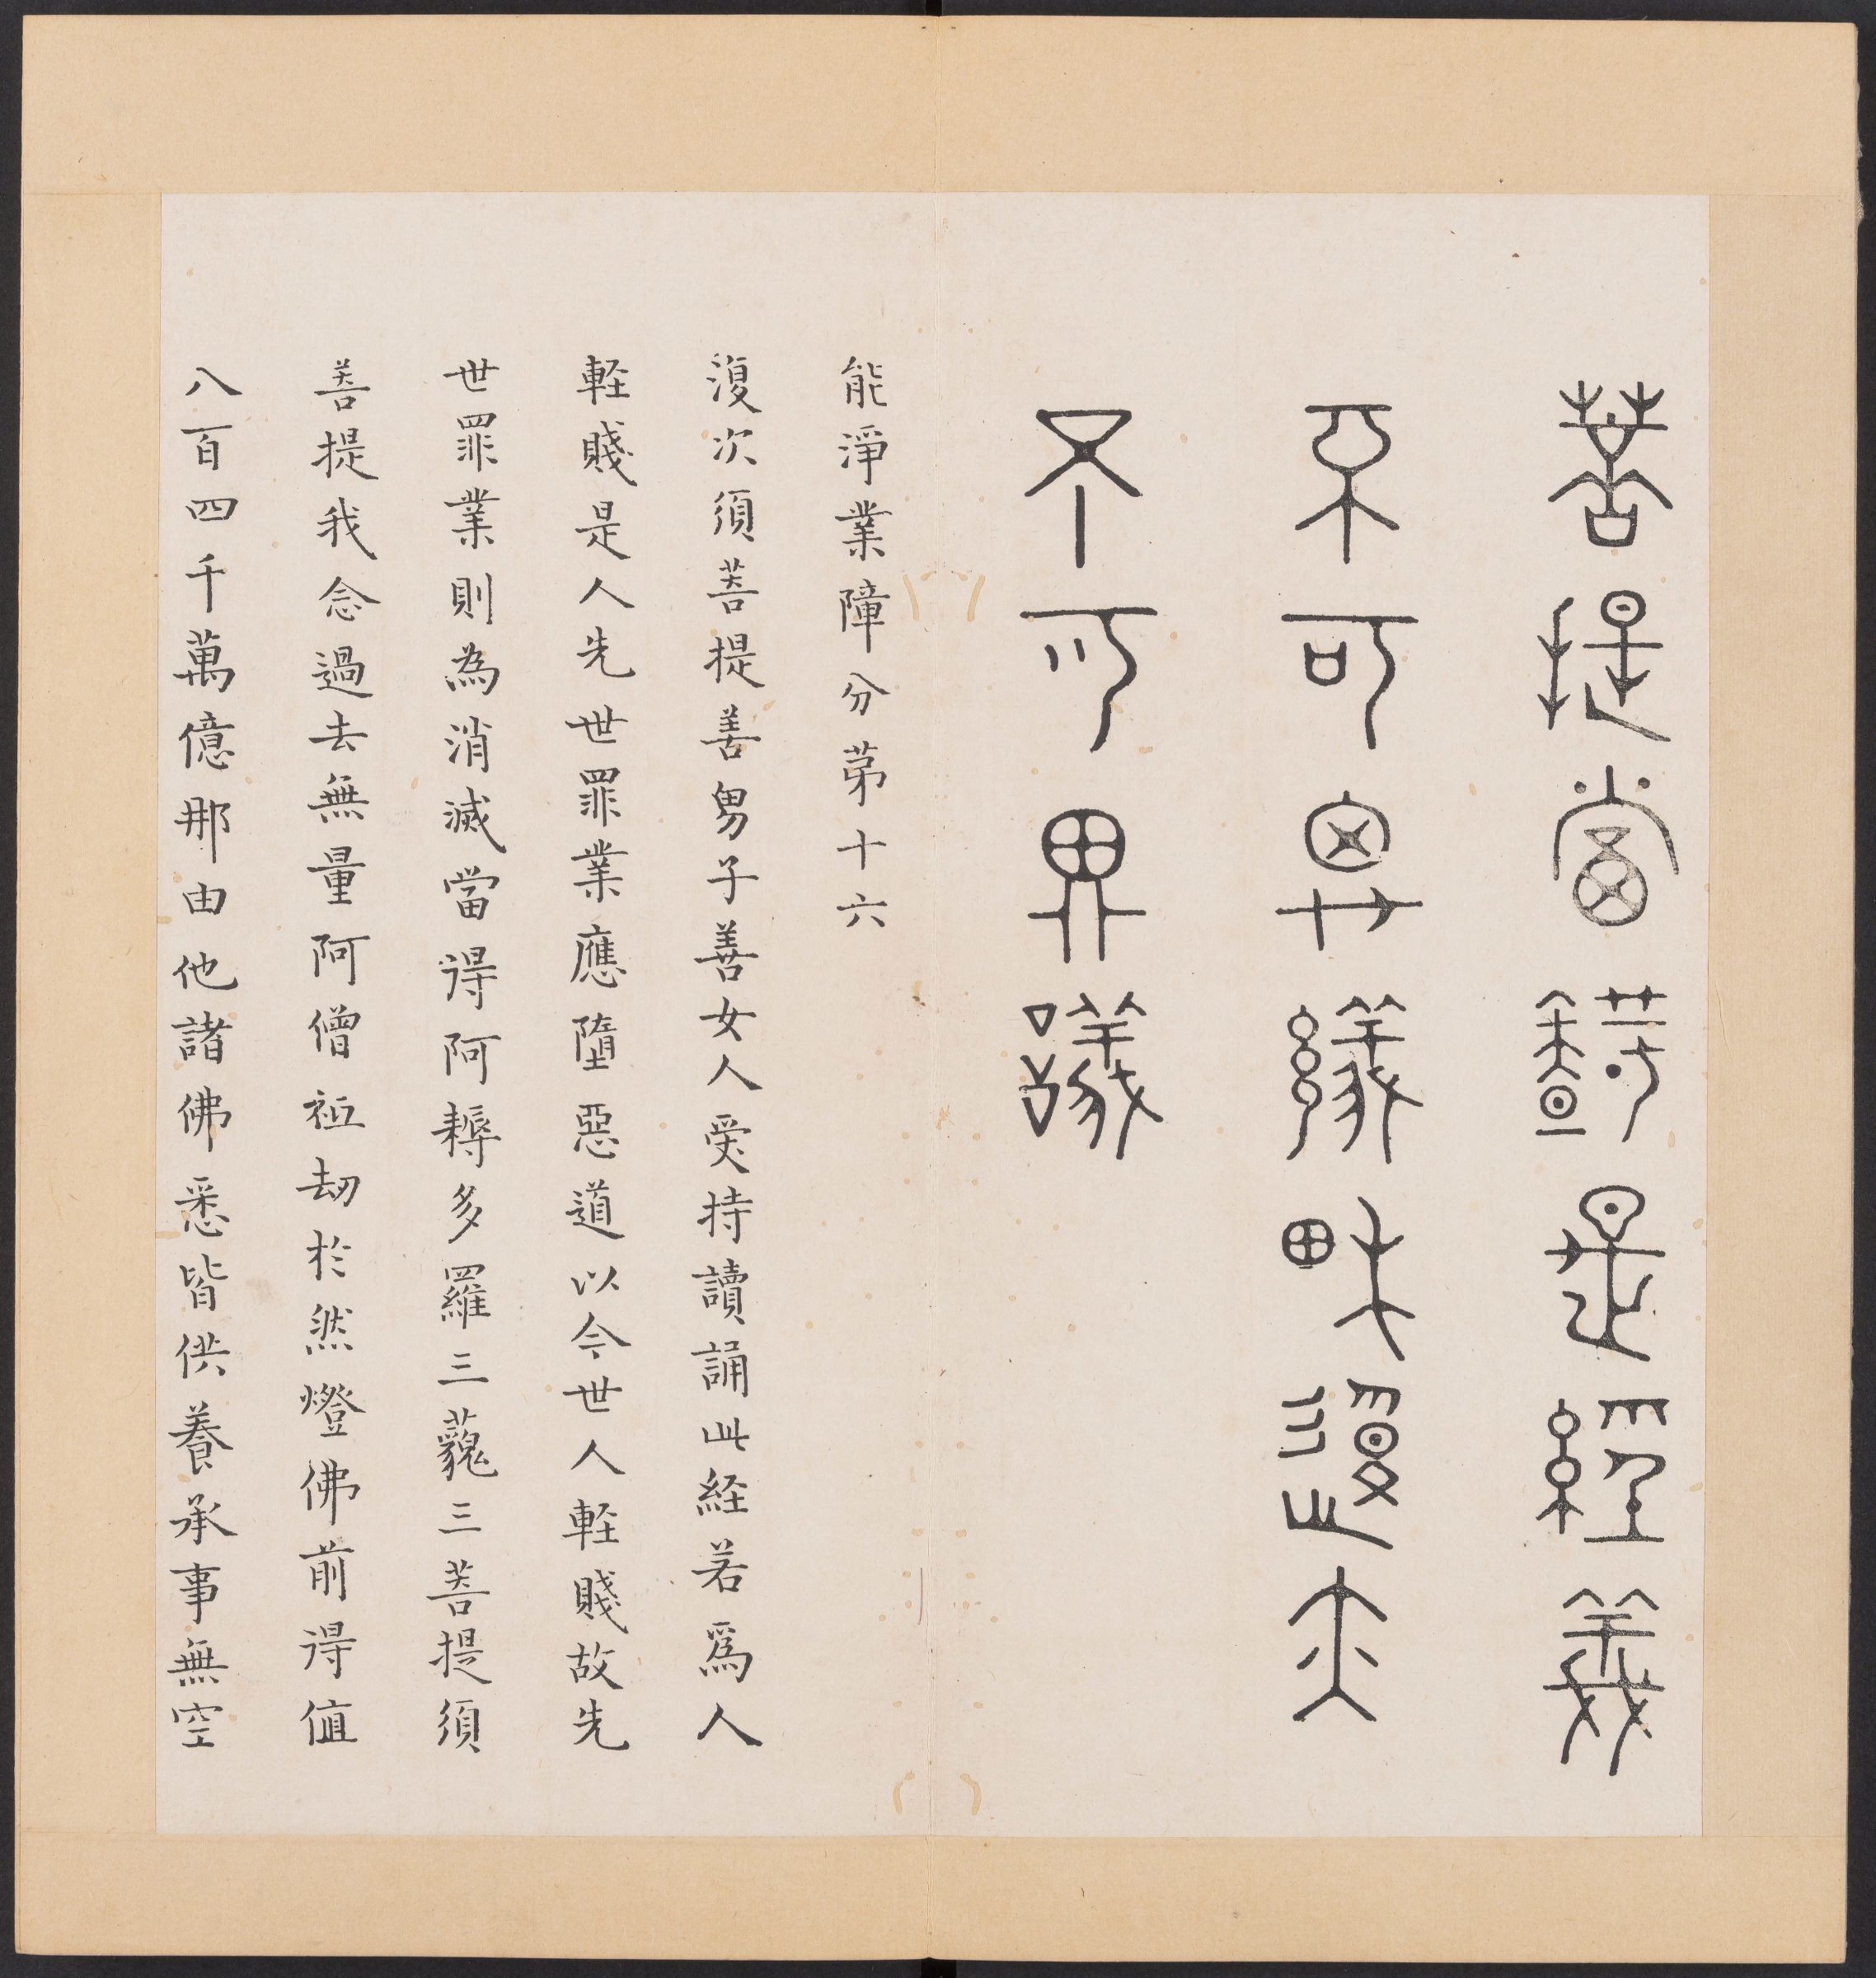 菩提當知是經義
不可思議果報亦
不可思議
能淨業障分第十六
復次須菩提善男子善女人受持讀誦此経若爲人
軽賤是人先世罪業應墮惡道以今世人軽賤故先
世罪業則為消滅當得阿耨多羅三藐三菩提須
菩提我念過去無量阿僧祇劫於然燈佛前得值
八百四千萬億那由他諸佛悉皆供養承事無空